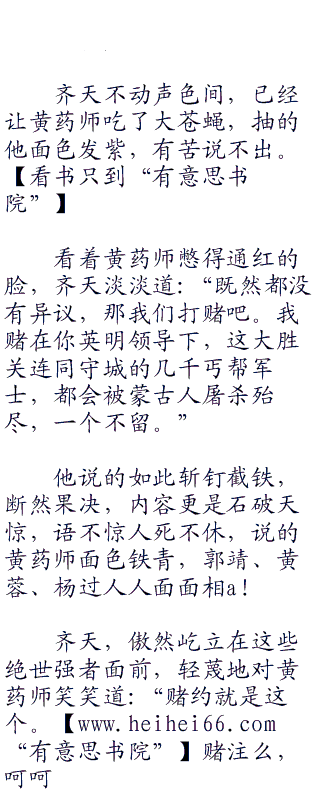 齐天不动声色间，已经
让黄药师吃了大苍蝇，抽的
他面色发紫，有苦说不出。
【看书只到“有意思书
院”】
看着黄药师憋得通红的
脸，齐天淡淡道：“既然都没
有异议，那我们打赌吧。我
赌在你英明领导下，这大胜
关连同守城的几千丐帮军
士，都会被蒙古人屠杀殆
尽，一个不留。”
他说的如此斩钉截铁，
断然果决，内容更是石破天
惊，语不惊人死不休，说的
黄药师面色铁青，郭靖、黄
蓉、杨过人人面面相a！
齐天，傲然屹立在这些
绝世强者面前，轻蔑地对黄
药师笑笑道：“赌约就是这
个。【www.heihei66.com
“有意思书院”】赌注么，
呵呵